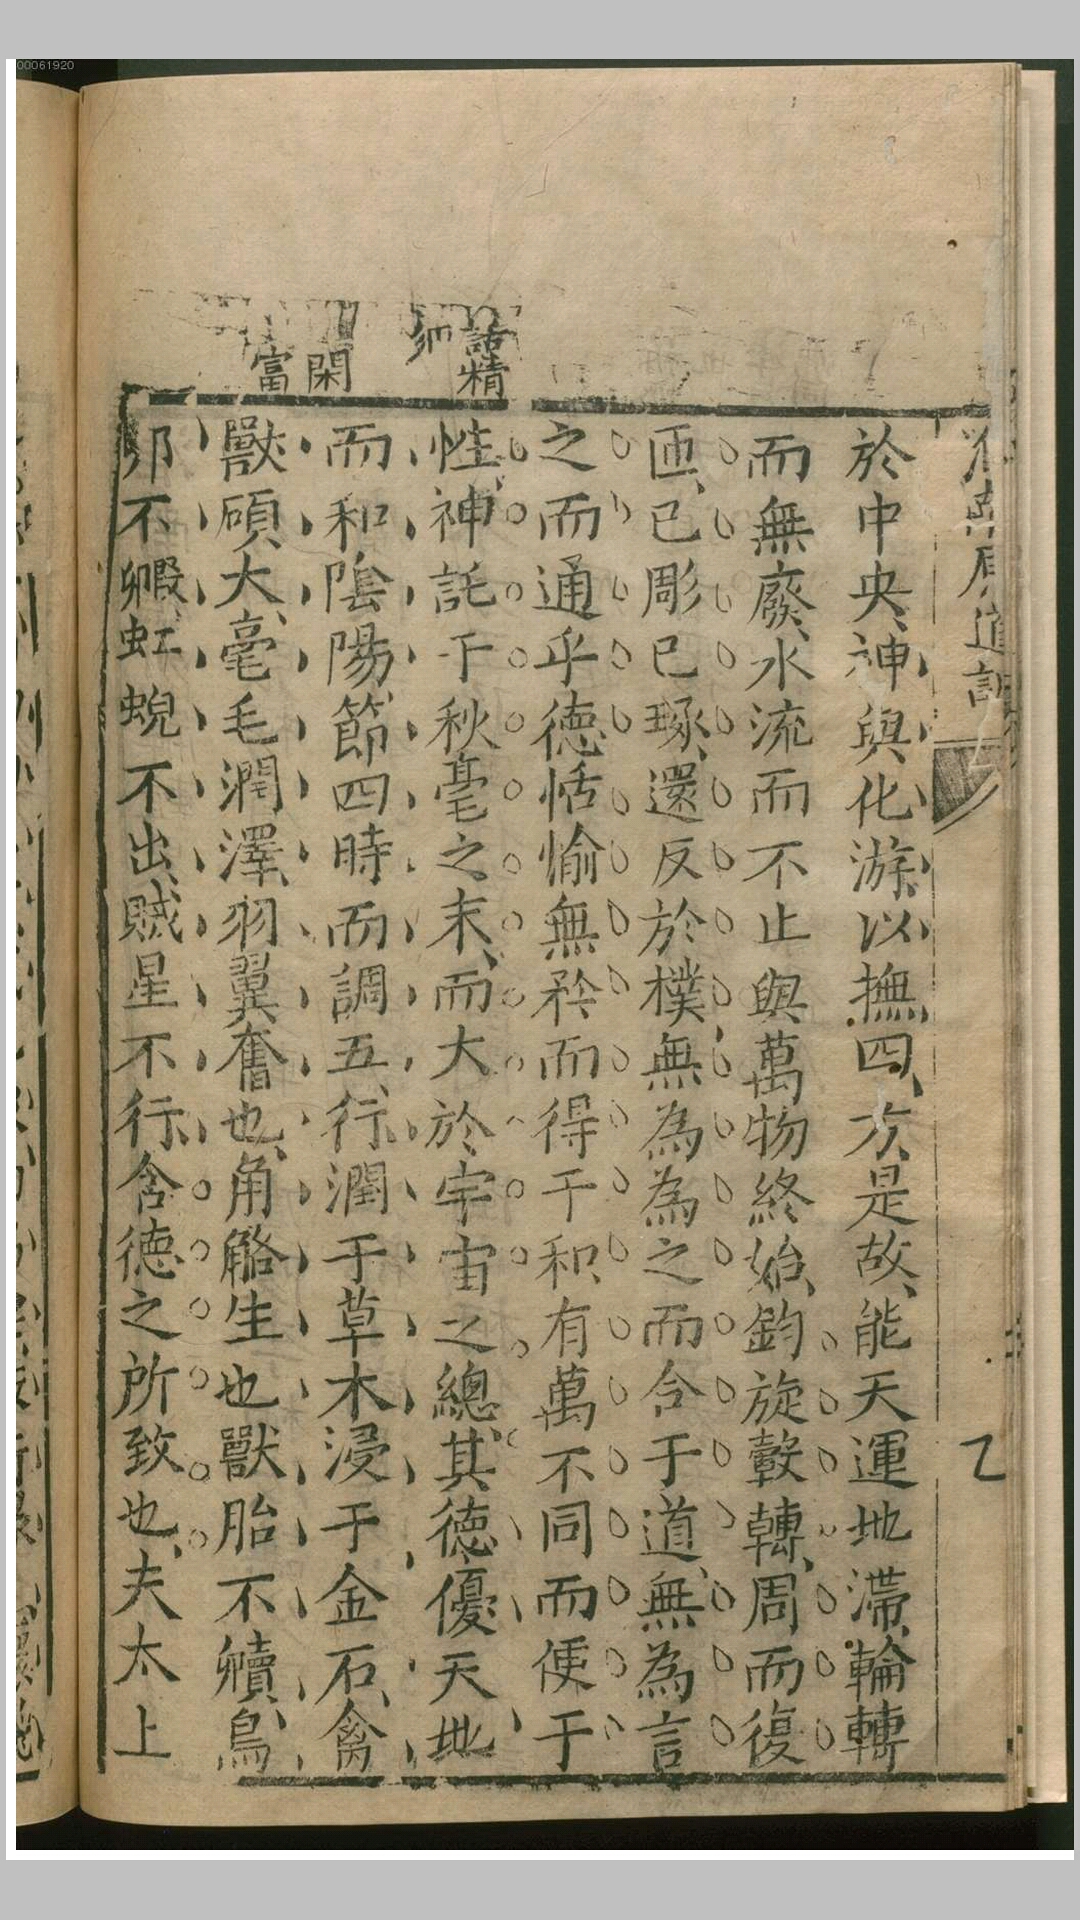 00061920
道訓
於中央神與化游以撫四方是故能天運地滯輪轉
而無廢水流而不止與萬物終始鈞旋轂轉周而復
匝已彫已琢還反於樸無為為之而合于道無為言
之而通乎德恬愉無矜而得于和有萬不同而便于
性神託于秋毫之末而大於宇宙之總其德優天地
而和陰陽節四時而調五行潤于草木浸于金石禽
獸碩大毫毛潤澤羽翼奮也角觡生也獸胎不贕鳥
卵不毈虹蜺不出賊星不行含德之所致也夫太上
語精
閑
富
乙